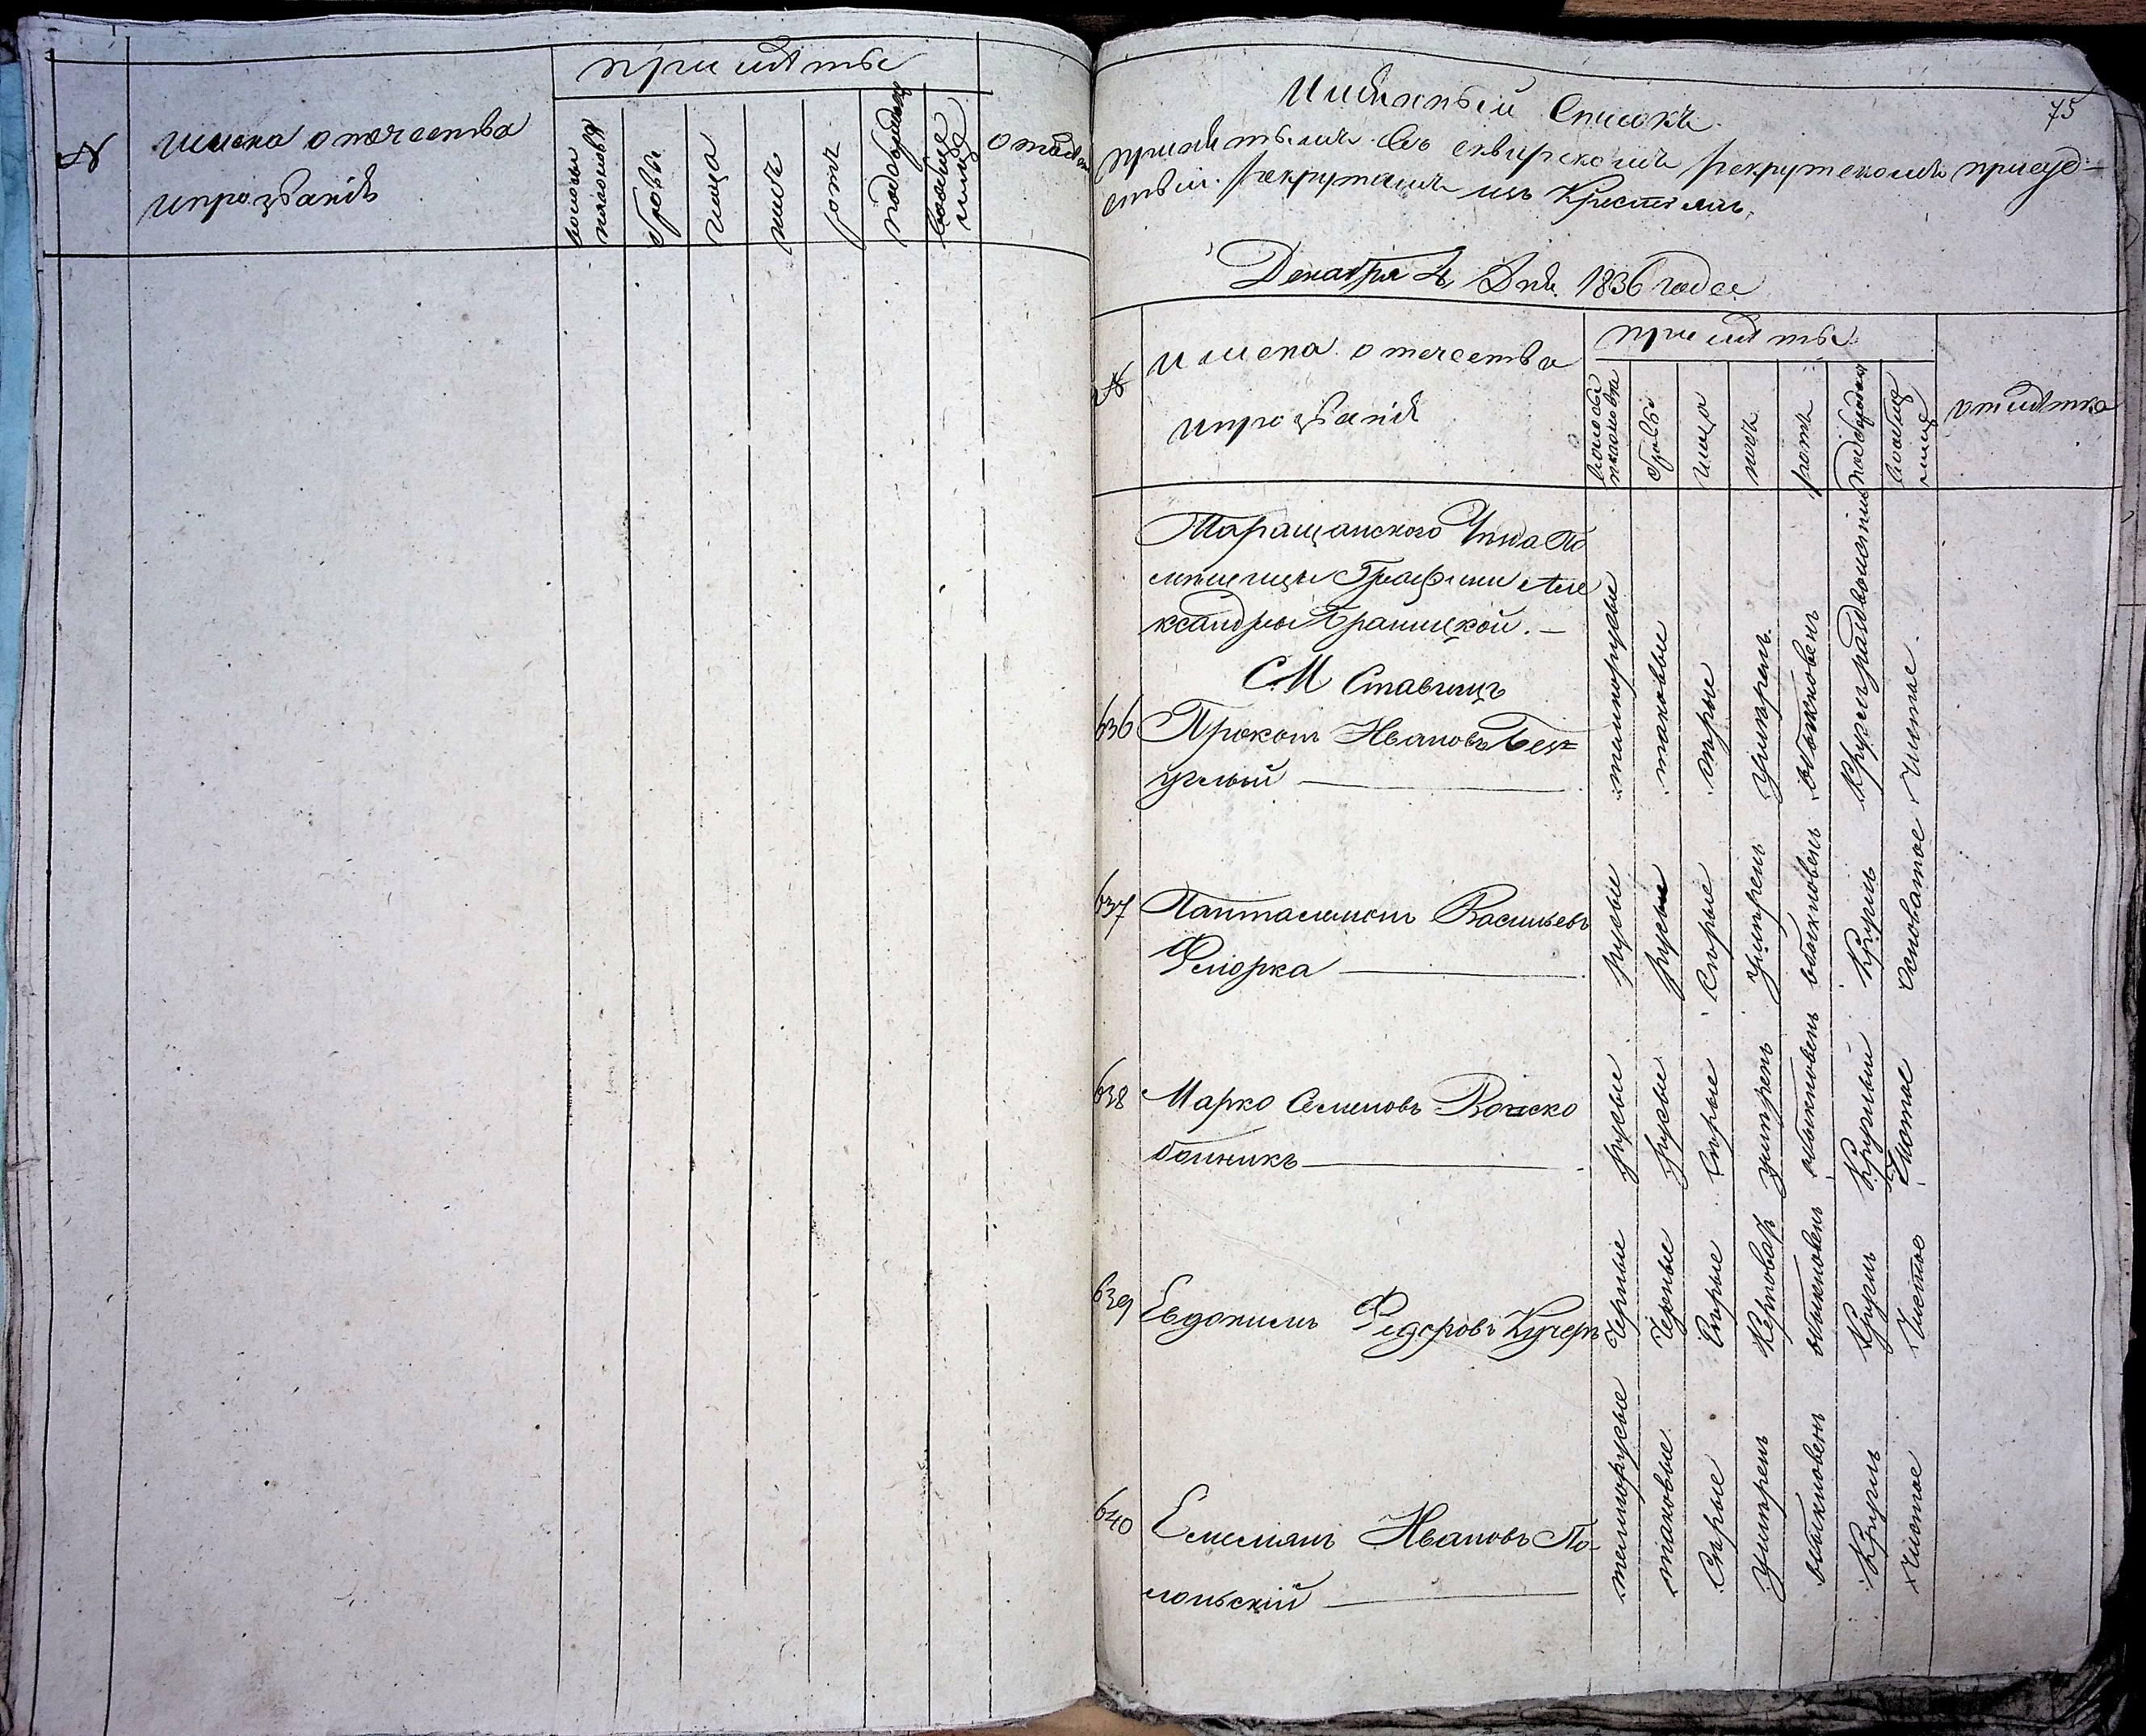 №
имена отечества
ипрозванiя
приметы
волосы
наголове
брови
глаза
носъ
ротъ
подбородокъ
вообще
лице
отме
75
Имянный Списокъ
принятымъ въ сквирскомъ рекрутскомъ присуд-
ствiи рекрутамъ изъ Крестьянъ,
Декабря 4 Дня 1836 года
№
имена отечества
ипрозванiя
приметы
волосы
наголове
брови
глаза
носъ
ротъ
подбородокъ
вообще
лице
отметка
Таращанского Уезда По
мещицы Графини Але
ксандры Браницкой. —
С. М Ставищъ
636 Прокопъ Ивановъ Без=
углый темнорусые таковые серые умеренъ обыкновенъ Круглъ чистое
637 Пантелимонъ Васильевъ
Флiорка русые русые Серые Умеренъ обыкновенъ Круглъ осповатое
638 Марко Семеновъ Воско
бойникъ русые русые Серые умеренъ обыкновенъ Круглый чистое
639 Евдокимъ Федоровъ Кучеръ Черные Черные Серые обыкновенъ Круглъ Чистое
640 Емелiянъ Ивановъ По-
лольскiй темнорусые таковые Серые Умеренъ обыкновенъ Круглъ чистое